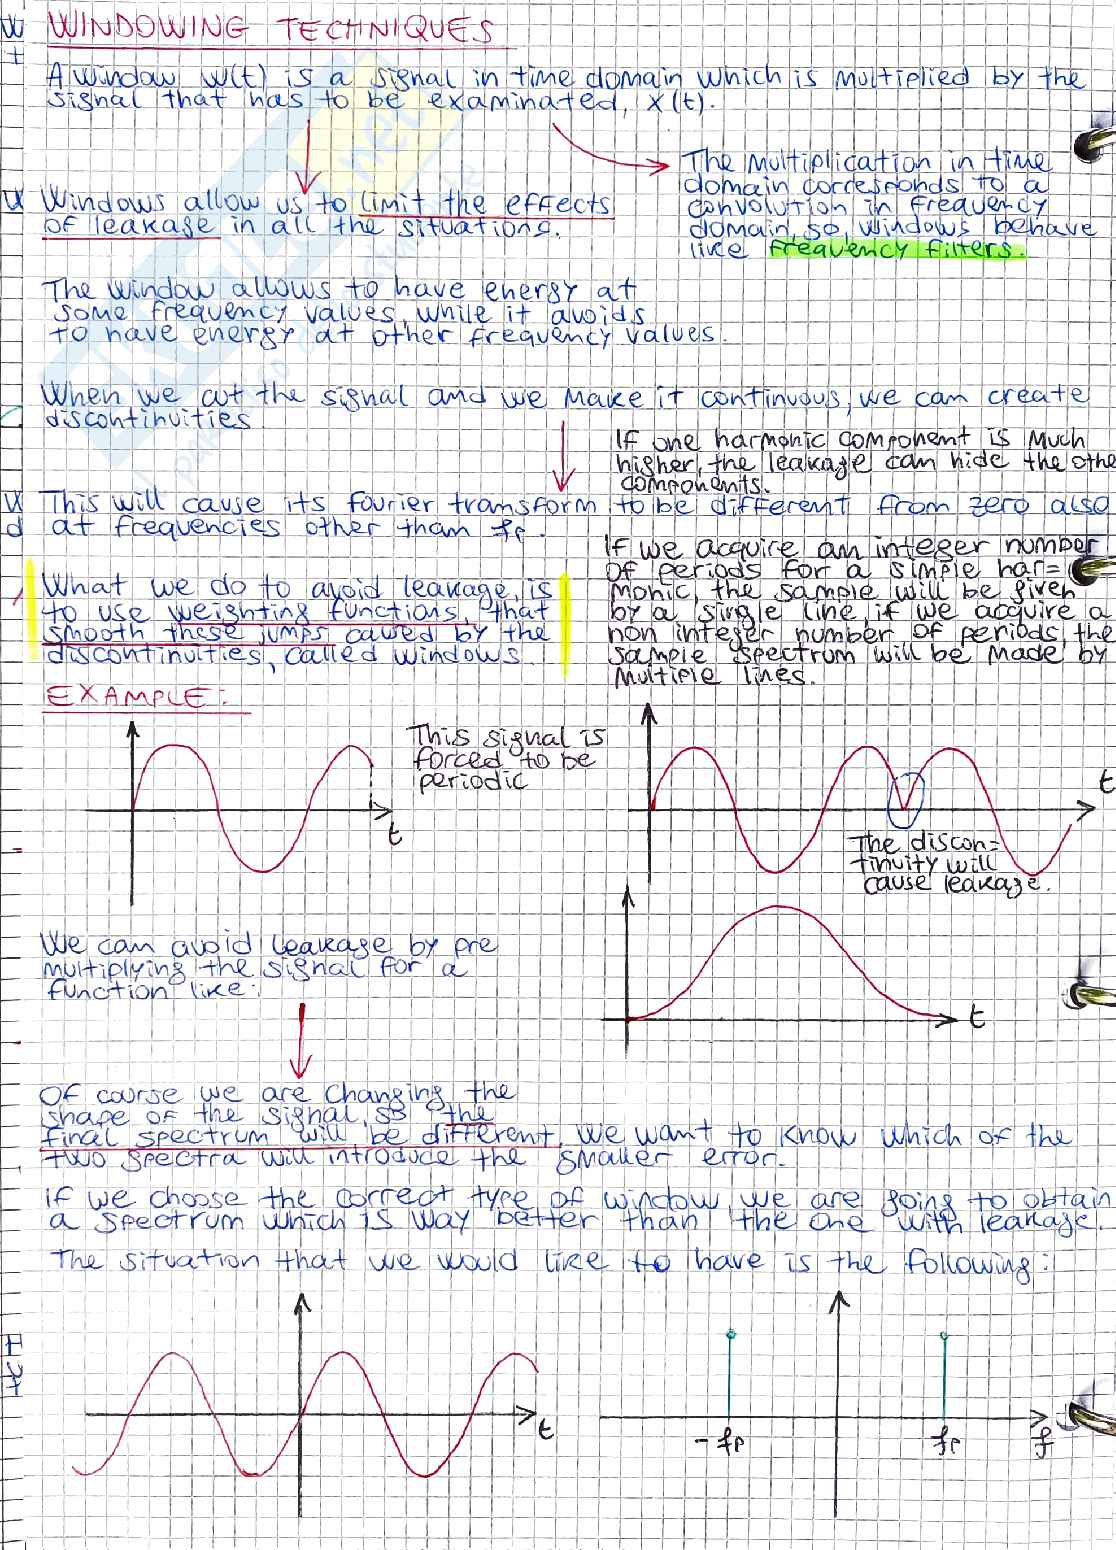 WINDOWING TECHNIQUES
A window w(t) is a signal in time domain which is multiplied by the
signal that has to be examinated, x(t).
The multiplication in time
domain corresponds to a
convolution in frequency
domain, so, windows behave
like frequency filters.
Windows allow us to limit the effects
of leakage in all the situations.
The window allows to have energy at
some frequency values, while it avoids
to have energy at other frequency values.
When we cut the signal and we make it continuous, we can create
discontinuities.
If one harmonic component is much
higher, the leakage can hide the othe
components.
This will cause its fourier transform to be different from zero also
at frequencies other than fp.
If we acquire an integer number
of periods for a simple har=
monic, the sample will be given
by a single line, if we acquire a
non integer number of periods, the
sample spectrum will be made by
multiple lines.
What we do to avoid leakage, is
to use weighting functions, that
smooth these jumps caused by the
discontinuities, called windows.
EXAMPLE:
This signal is
forced to be
periodic
t
t
The discon=
tinuity will
cause leakage.
We can avoid leakage by pre
multiplying the signal for a
function like:
t
Of course we are changing the
shape of the signal, so the
final spectrum will be different, we want to know which of the
two spectra will introduce the smaller error.
if we choose the correct type of window, we are going to obtain
a spectrum which is way better than the one with leakage.
The situation that we would like to have is the following:
t
- fp
fp
f